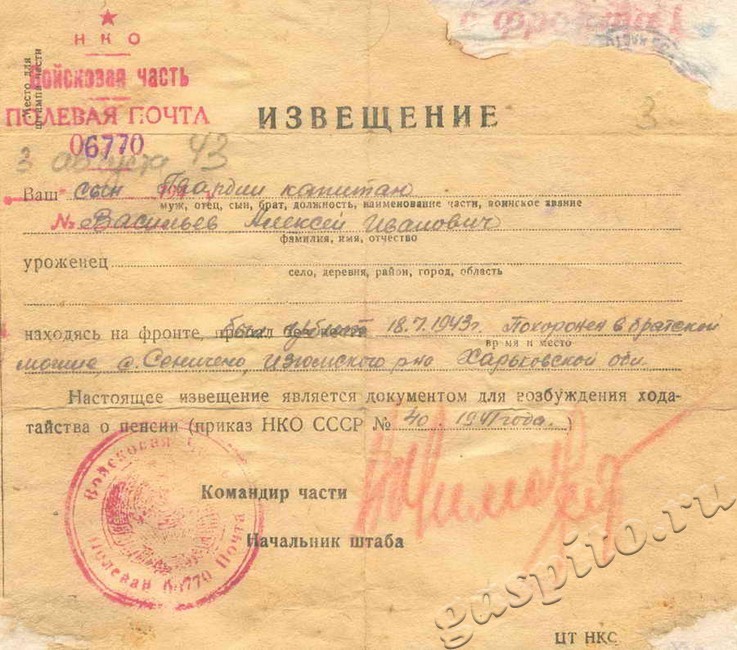 с фронта
НКО
Войсковая часть
ПОЛЕВАЯ ПОЧТА
06770
Место для
штампа части
ИЗВЕЩЕНИЕ
3
3 августа 43
Ваш сын Гвардии капитан
муж, отец, сын, брат, должность, наименование части, воинское звание
№ Васильев Алексей Иванович
фамилия, имя, отчество
уроженец
село, деревня, район, город, область
находясь на фронте, был убит 18.7.1943г. Похоронен в братской
время и место
могиле с. Сеничено, Изюмского р-на Харьковской обл
Настоящее извещение является документом для возбуждения хода-
тайства о пенсии (приказ НКО СССР № 40 1941 года.)
Войсковая
Полевая 06770 Почта
Командир части
Начальник штаба
gaspiro.ru
ЦТ НКС